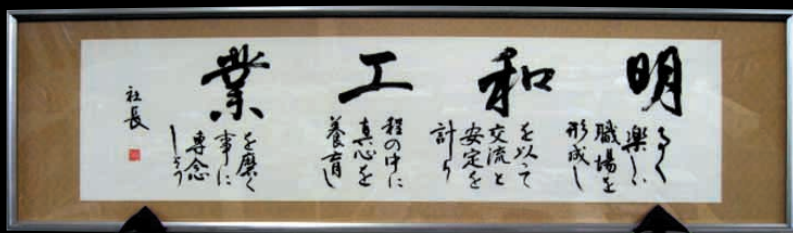 明和工業
るく
楽しい
職場を
形成し
を以って
交流と
安定を
計り
程の中に
真心を
養育し
を磨く
事に
専念
しよう
社長